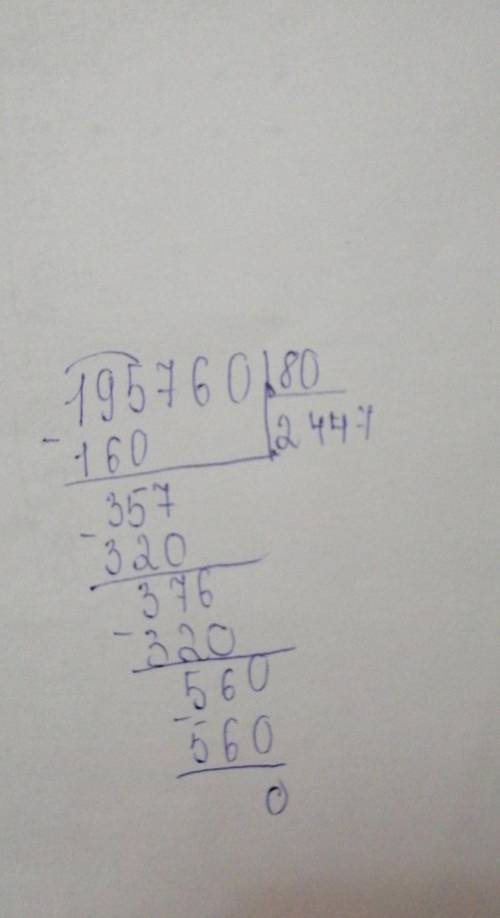 195760 80
- 160 2447
357
- 320
376
- 320
560
- 560
0